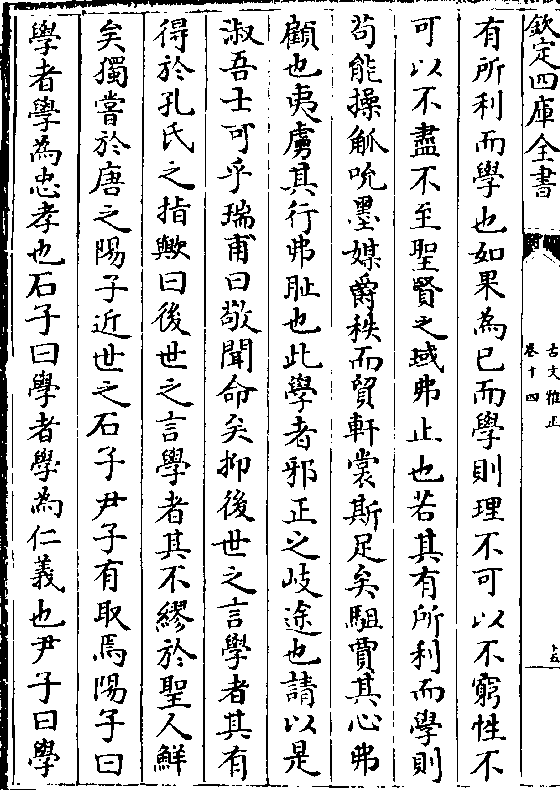 欽定四庫全書
古文雅正
卷十四
有所利而學也如果為已而學則理不可以不窮性不
可以不盡不至聖賢之域弗止也若其有所利而學則
茍能操觚吮墨媒爵秩而貿軒裳斯足矣駔賈其心弗
顧也夷虜其行弗恥也此學者邪正之岐途也請以是
淑吾士可乎瑞甫曰敬聞命矣抑後世之言學者其有
得於孔氏之指歟曰後世之言學者其不繆於聖人鮮
矣獨嘗於唐之陽子近世之石子尹子有取焉陽子曰
學者學為忠孝也石子曰學者學為仁義也尹子曰學